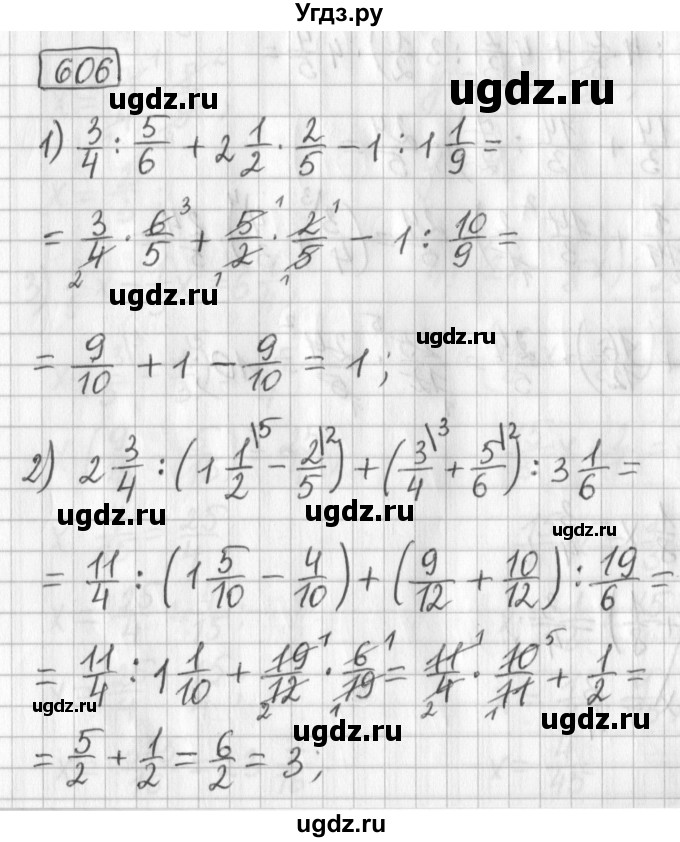 Угдз.ру
606
ugdz.ru ugdz.ru
1) 3/4 : 5/6 + 2 1/2 · 2/5 − 1 : 1 1/9 =
= 3/4 · 6/5 + 5/2 · 2/5 − 1 : 10/9 =
2 3 1 1 1 1
ugdz.ru
ugdz.ru
= 9/10 + 1 − 9/10 = 1;
2) 2 3/4 : (1 1/2 \5 − 2/5 \2) + (3/4 \3 + 5/6 \2) : 3 1/6 =
ugdz.ru ugdz.ru
ugdz.ru
= 11/4 : (1 5/10 − 4/10) + (9/12 + 10/12) : 19/6 =
= 11/4 : 1 1/10 + 19/12 · 6/19 = 11/4 · 10/11 + 1/2 =
1 1 2 1 1 5 2 1
ugdz.ru ugdz.ru ugdz.ru
= 5/2 + 1/2 = 6/2 = 3;
ugdz.ru